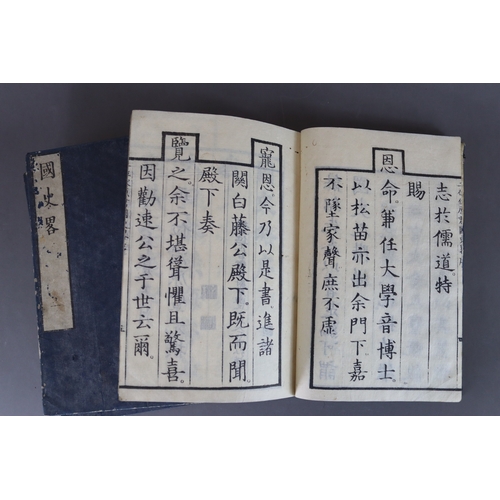 志於儒道特
賜
恩命兼任大學音博士
以松苗亦出余門下嘉
不墜家聲庶不虛
寵恩今乃以是書進諸
關白藤公殿下既而聞
殿下奏
覽之余不堪聳懼且驚喜
因勸速公之于世云爾
國史畧